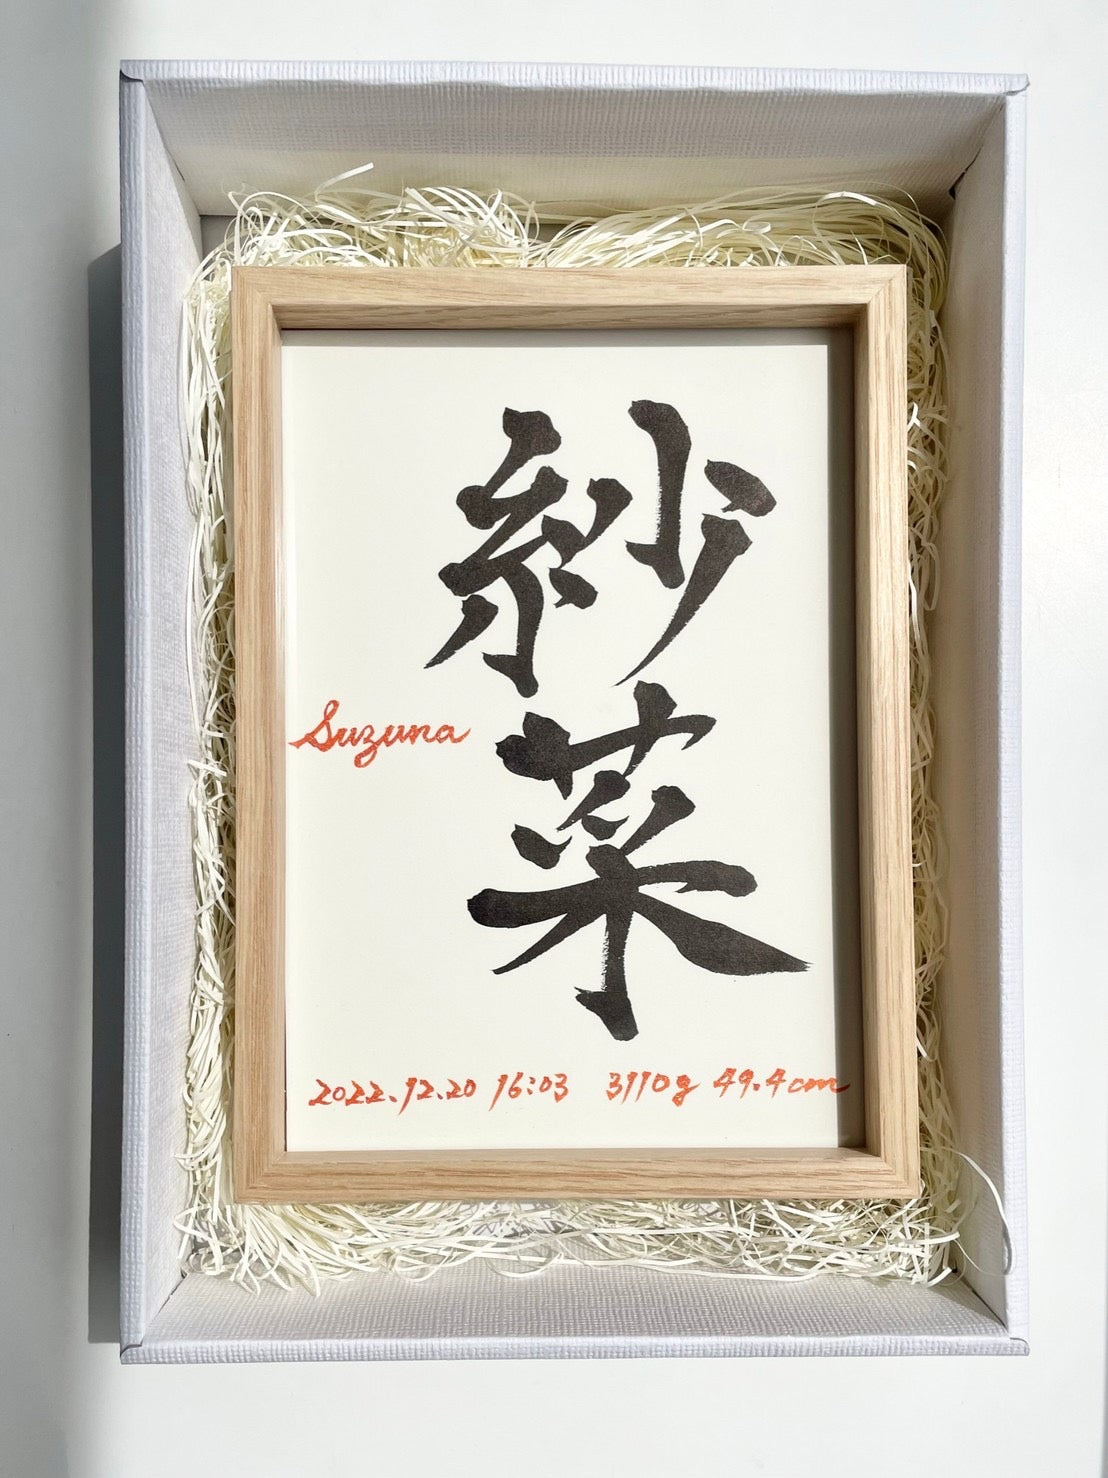 紗菜
Suzuna
2022.12.20 16:03 3110g 49.4cm